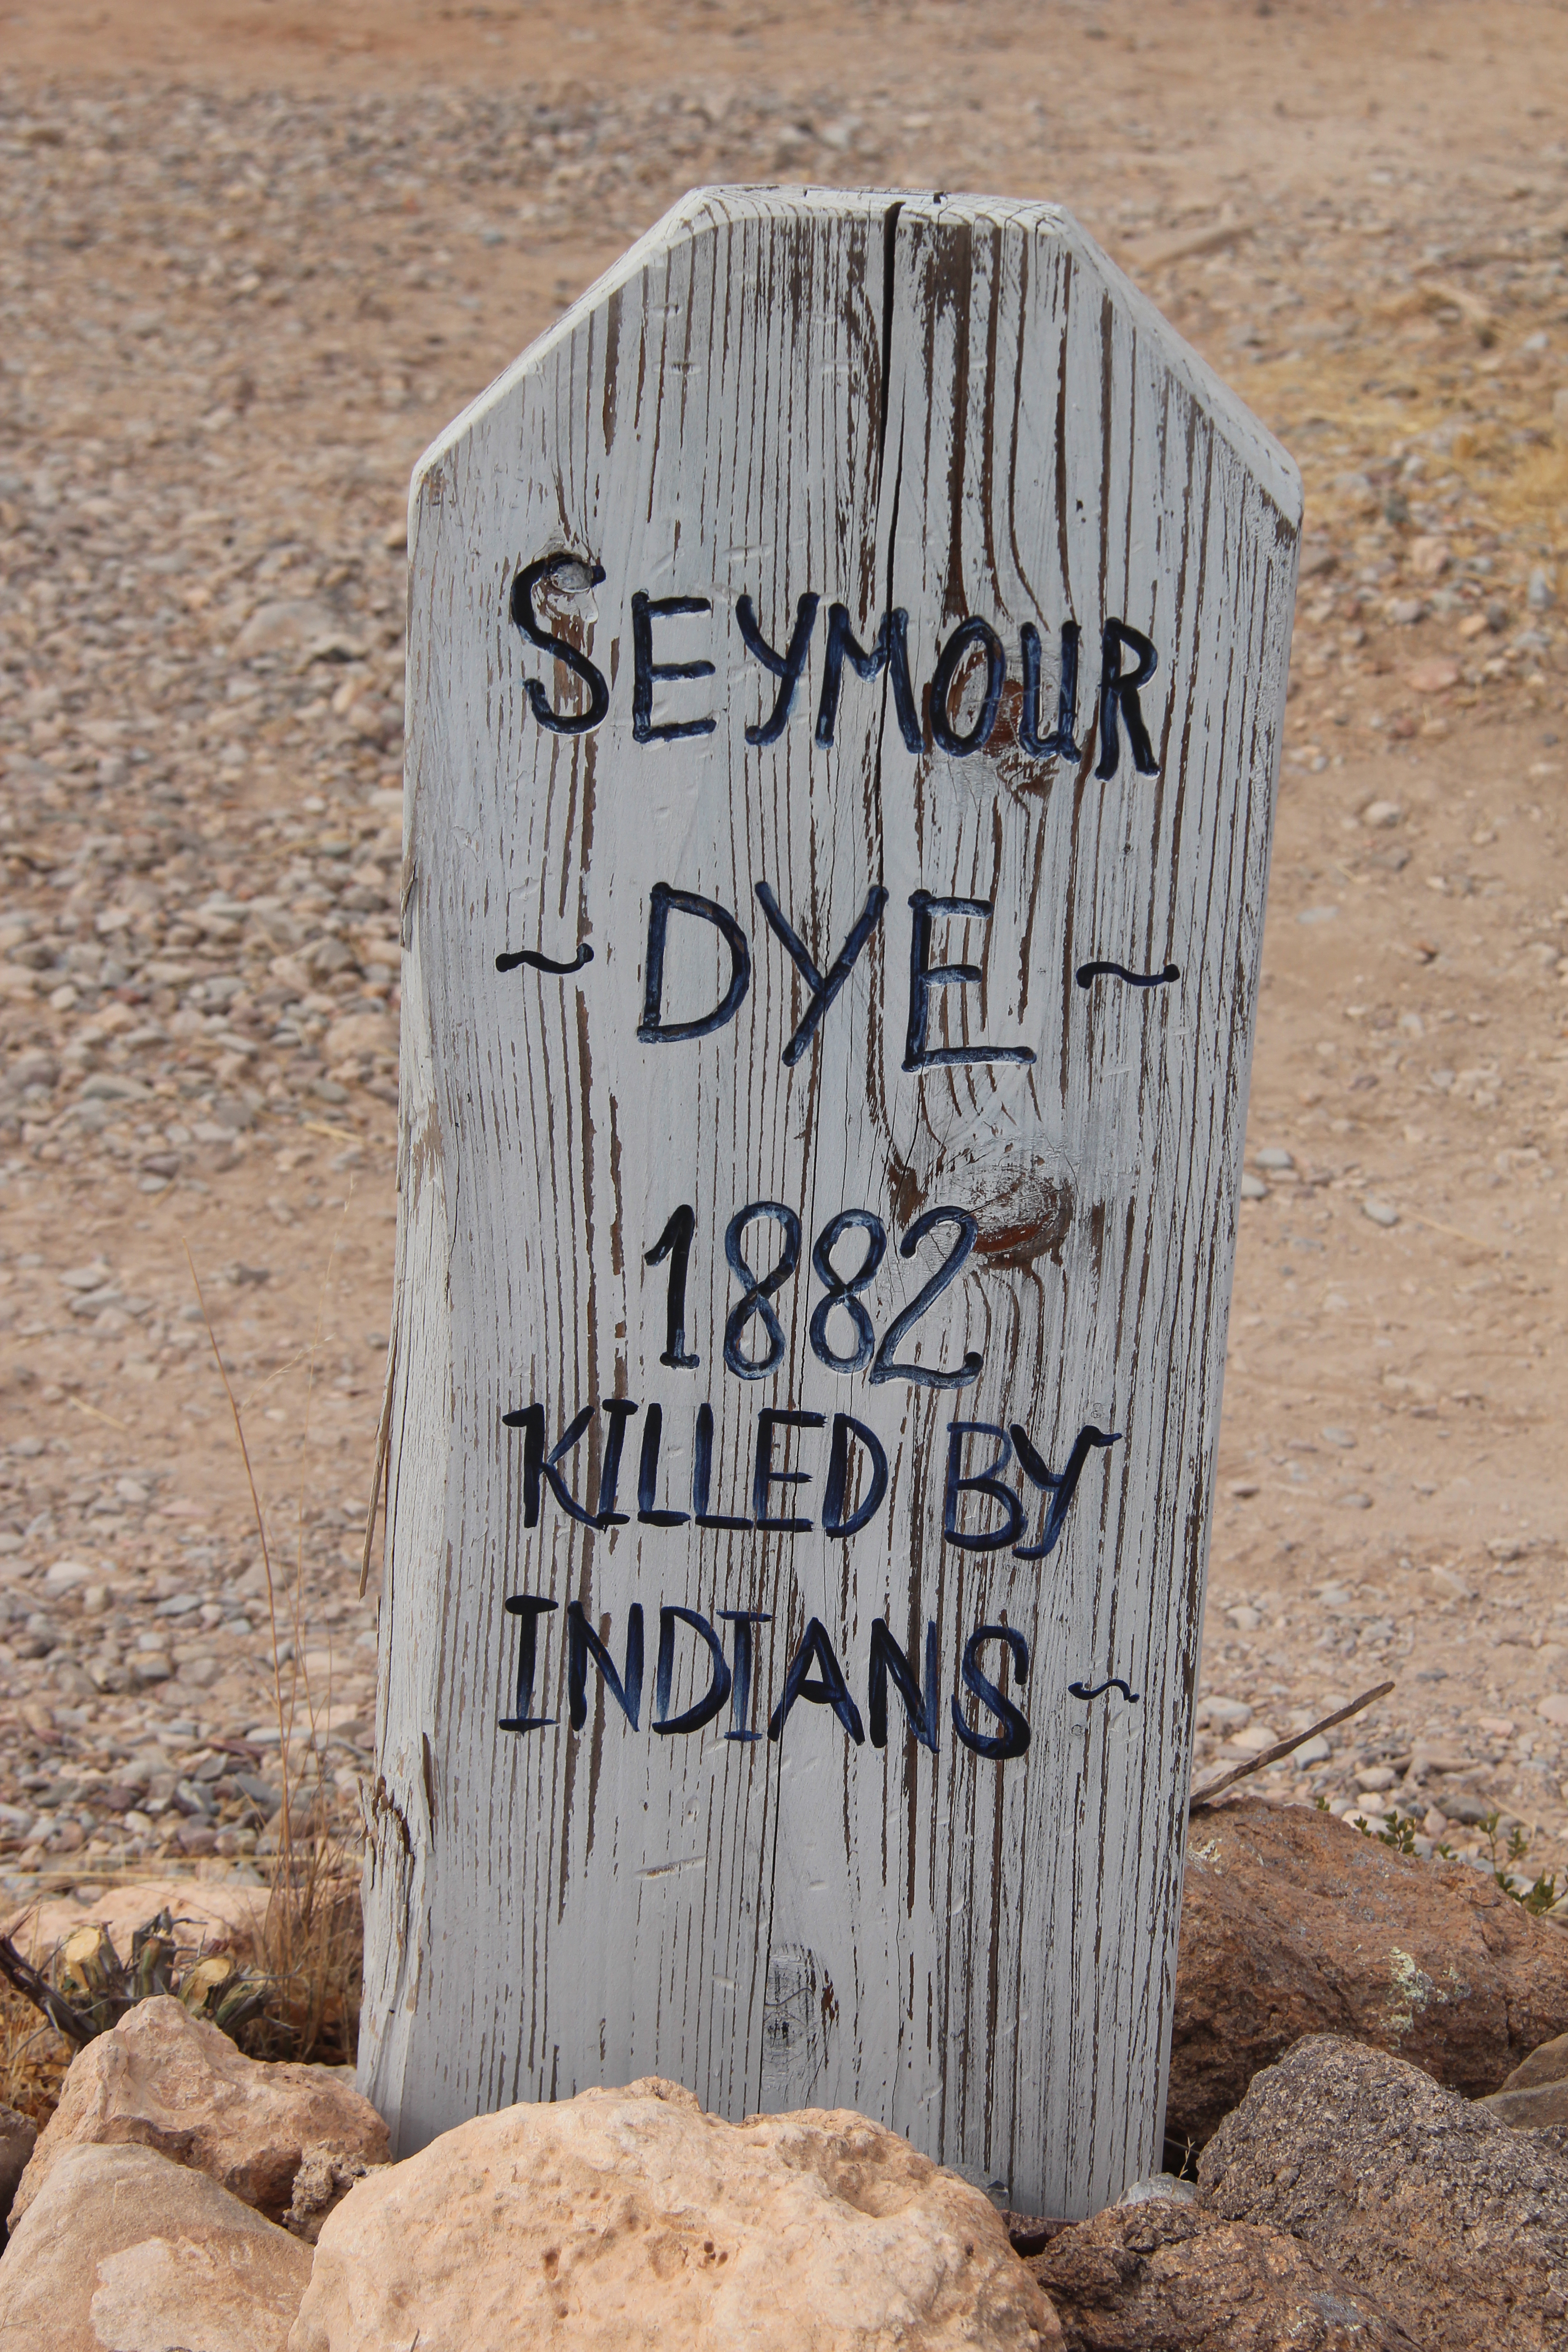 SEYMOUR
~ DYE ~
1882
KILLED BY
INDIANS ~